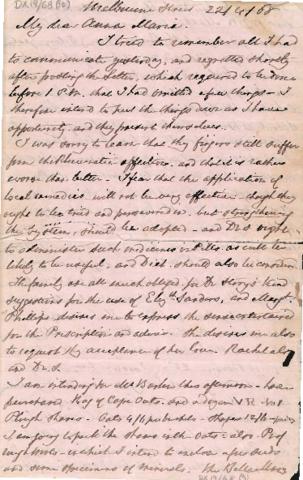 DX19/68 (80)
Melbourne 22/4/68
My dear Anna Maria.
I tried to remember all I had
to communicate yesterday, and regretted shortly
after posting the letter, which required to be done
before 1 P.M. that I had omitted a few things - I
therefore intend to put the things down as I have
opportunity and they present themselves.
I was sorry to learn that thy fingers still suffer
from the Rheumatic affection, and that it is rather
worse than better. I fear that the application of
local remedies will not be very effective - though they
ought to be tried and persevered in. but strengthening
the system should be adopted - and Dr S ought
to administer such medicines as will be
likely to be useful, and Diet should also be considered
The family are all much obliged for Dr Story's kind
suggestions for the use of Eliz Sanders, and Margt
Phillips desires me to express the sense entertained
for the Prescription and advice. She desires me also
to request thy acceptance of her love Rachel also
and Dr S.
I am intending for this afternoon - have
purchased Bag of Cape Oats and
Plough Shares - Oats 4/6 per bushel - Shares
I enjoy to put the Shares with Oats - also
which I intend to enclose
and some specimens of minerals. The